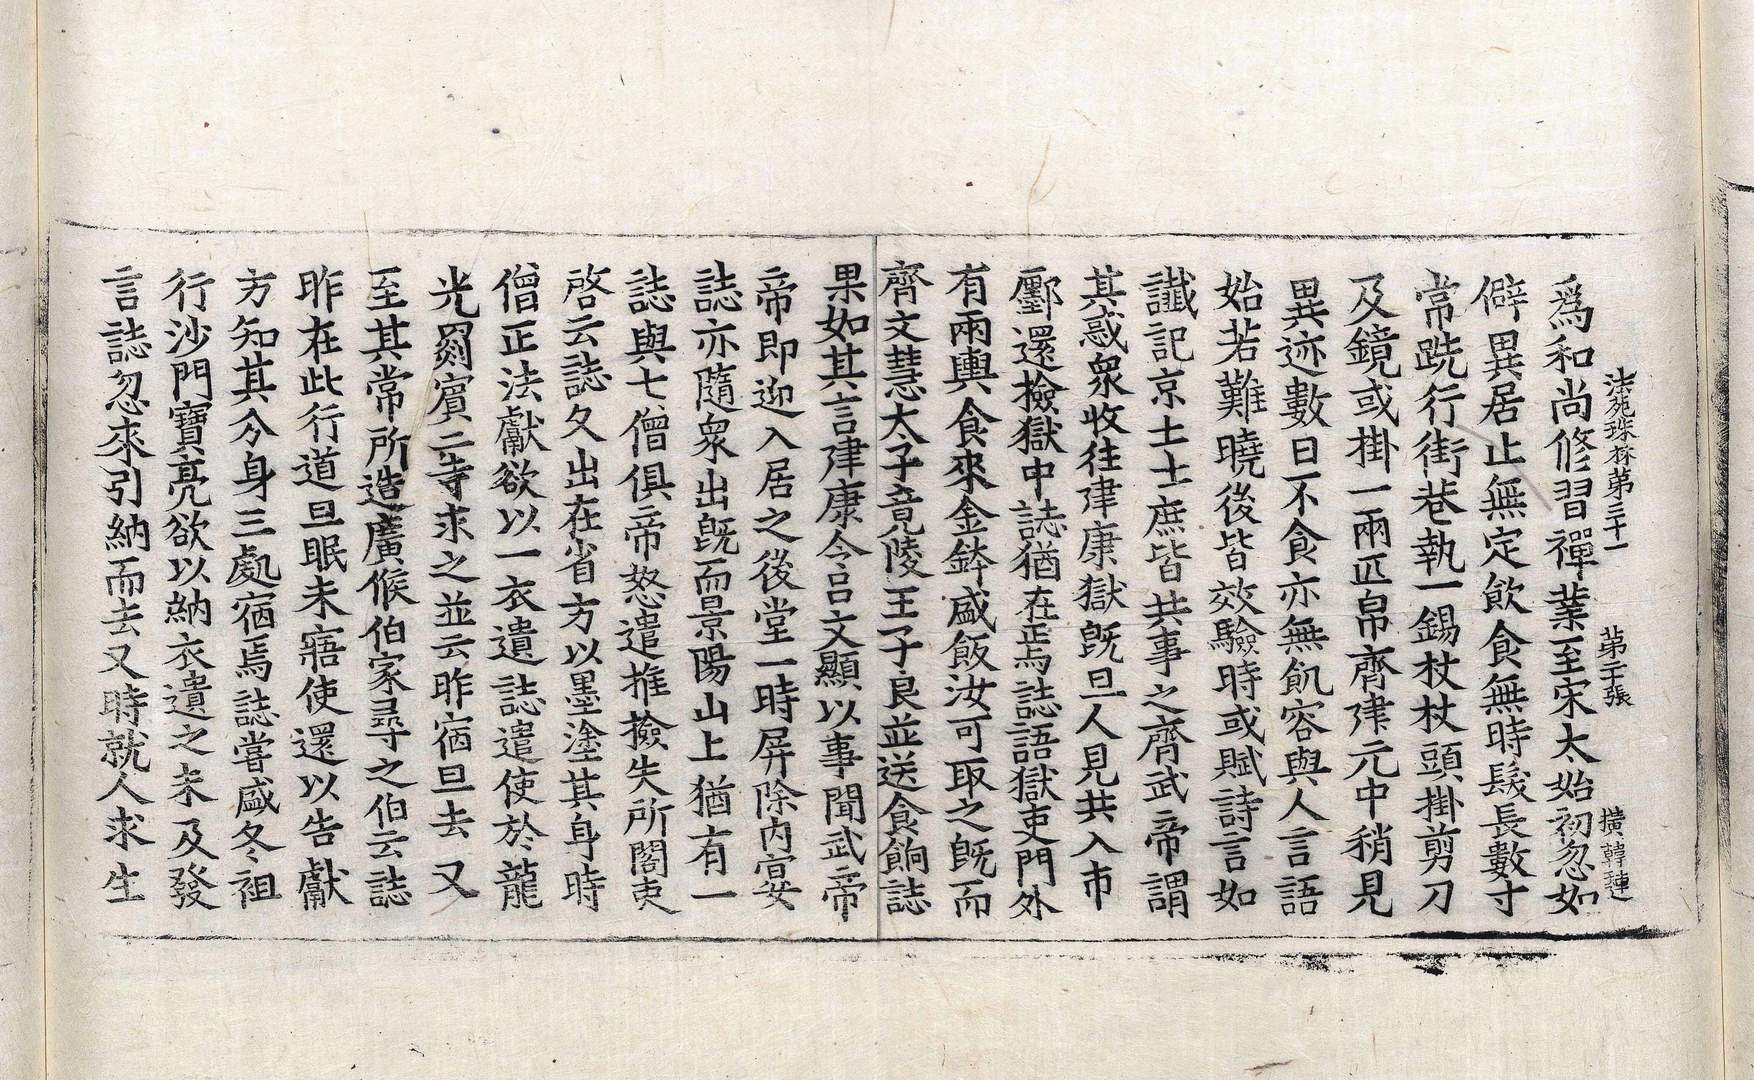 法苑珠林第三十一　第二十張　橫　韓璉
爲和尚修習禪業至宋太始初忽如
僻異居止無定飲食無時髮長數寸
常跣行街巷執一錫杖杖頭掛剪刀
及鏡或掛一兩匹帛齊建元中稍見
異迹數日不食亦無飢容與人言語
始若難曉後皆效驗時或賦詩言如
讖記京土士庶皆共事之齊武帝謂
其惑衆收往建康獄既旦人見其入市
鄽還撿獄中誌猶在焉誌語獄吏門外
有兩輿食來金鉢盛飯汝可取之既而
齊文慧太子竟陵王子良並送食餉誌
果如其言建康令呂文顯以事聞武帝
帝即迎入居之後堂一時屏除内宴
誌亦隨衆出既而景陽山上猶有一
誌與七僧俱帝怒遣推撿失所閤吏
啓云誌久出在省方以墨塗其身時
僧正法獻欲以一衣遺誌遣使於龍
光罽賓二寺求之並云昨宿旦去又
至其常所造廣候伯家尋之伯云誌
昨在此行道旦眠未寤使還以告獻
方知其分身三處宿焉誌嘗盛冬袒
行沙門寶亮欲以納衣遺之未及發
言誌忽來引納而去又時就人求生